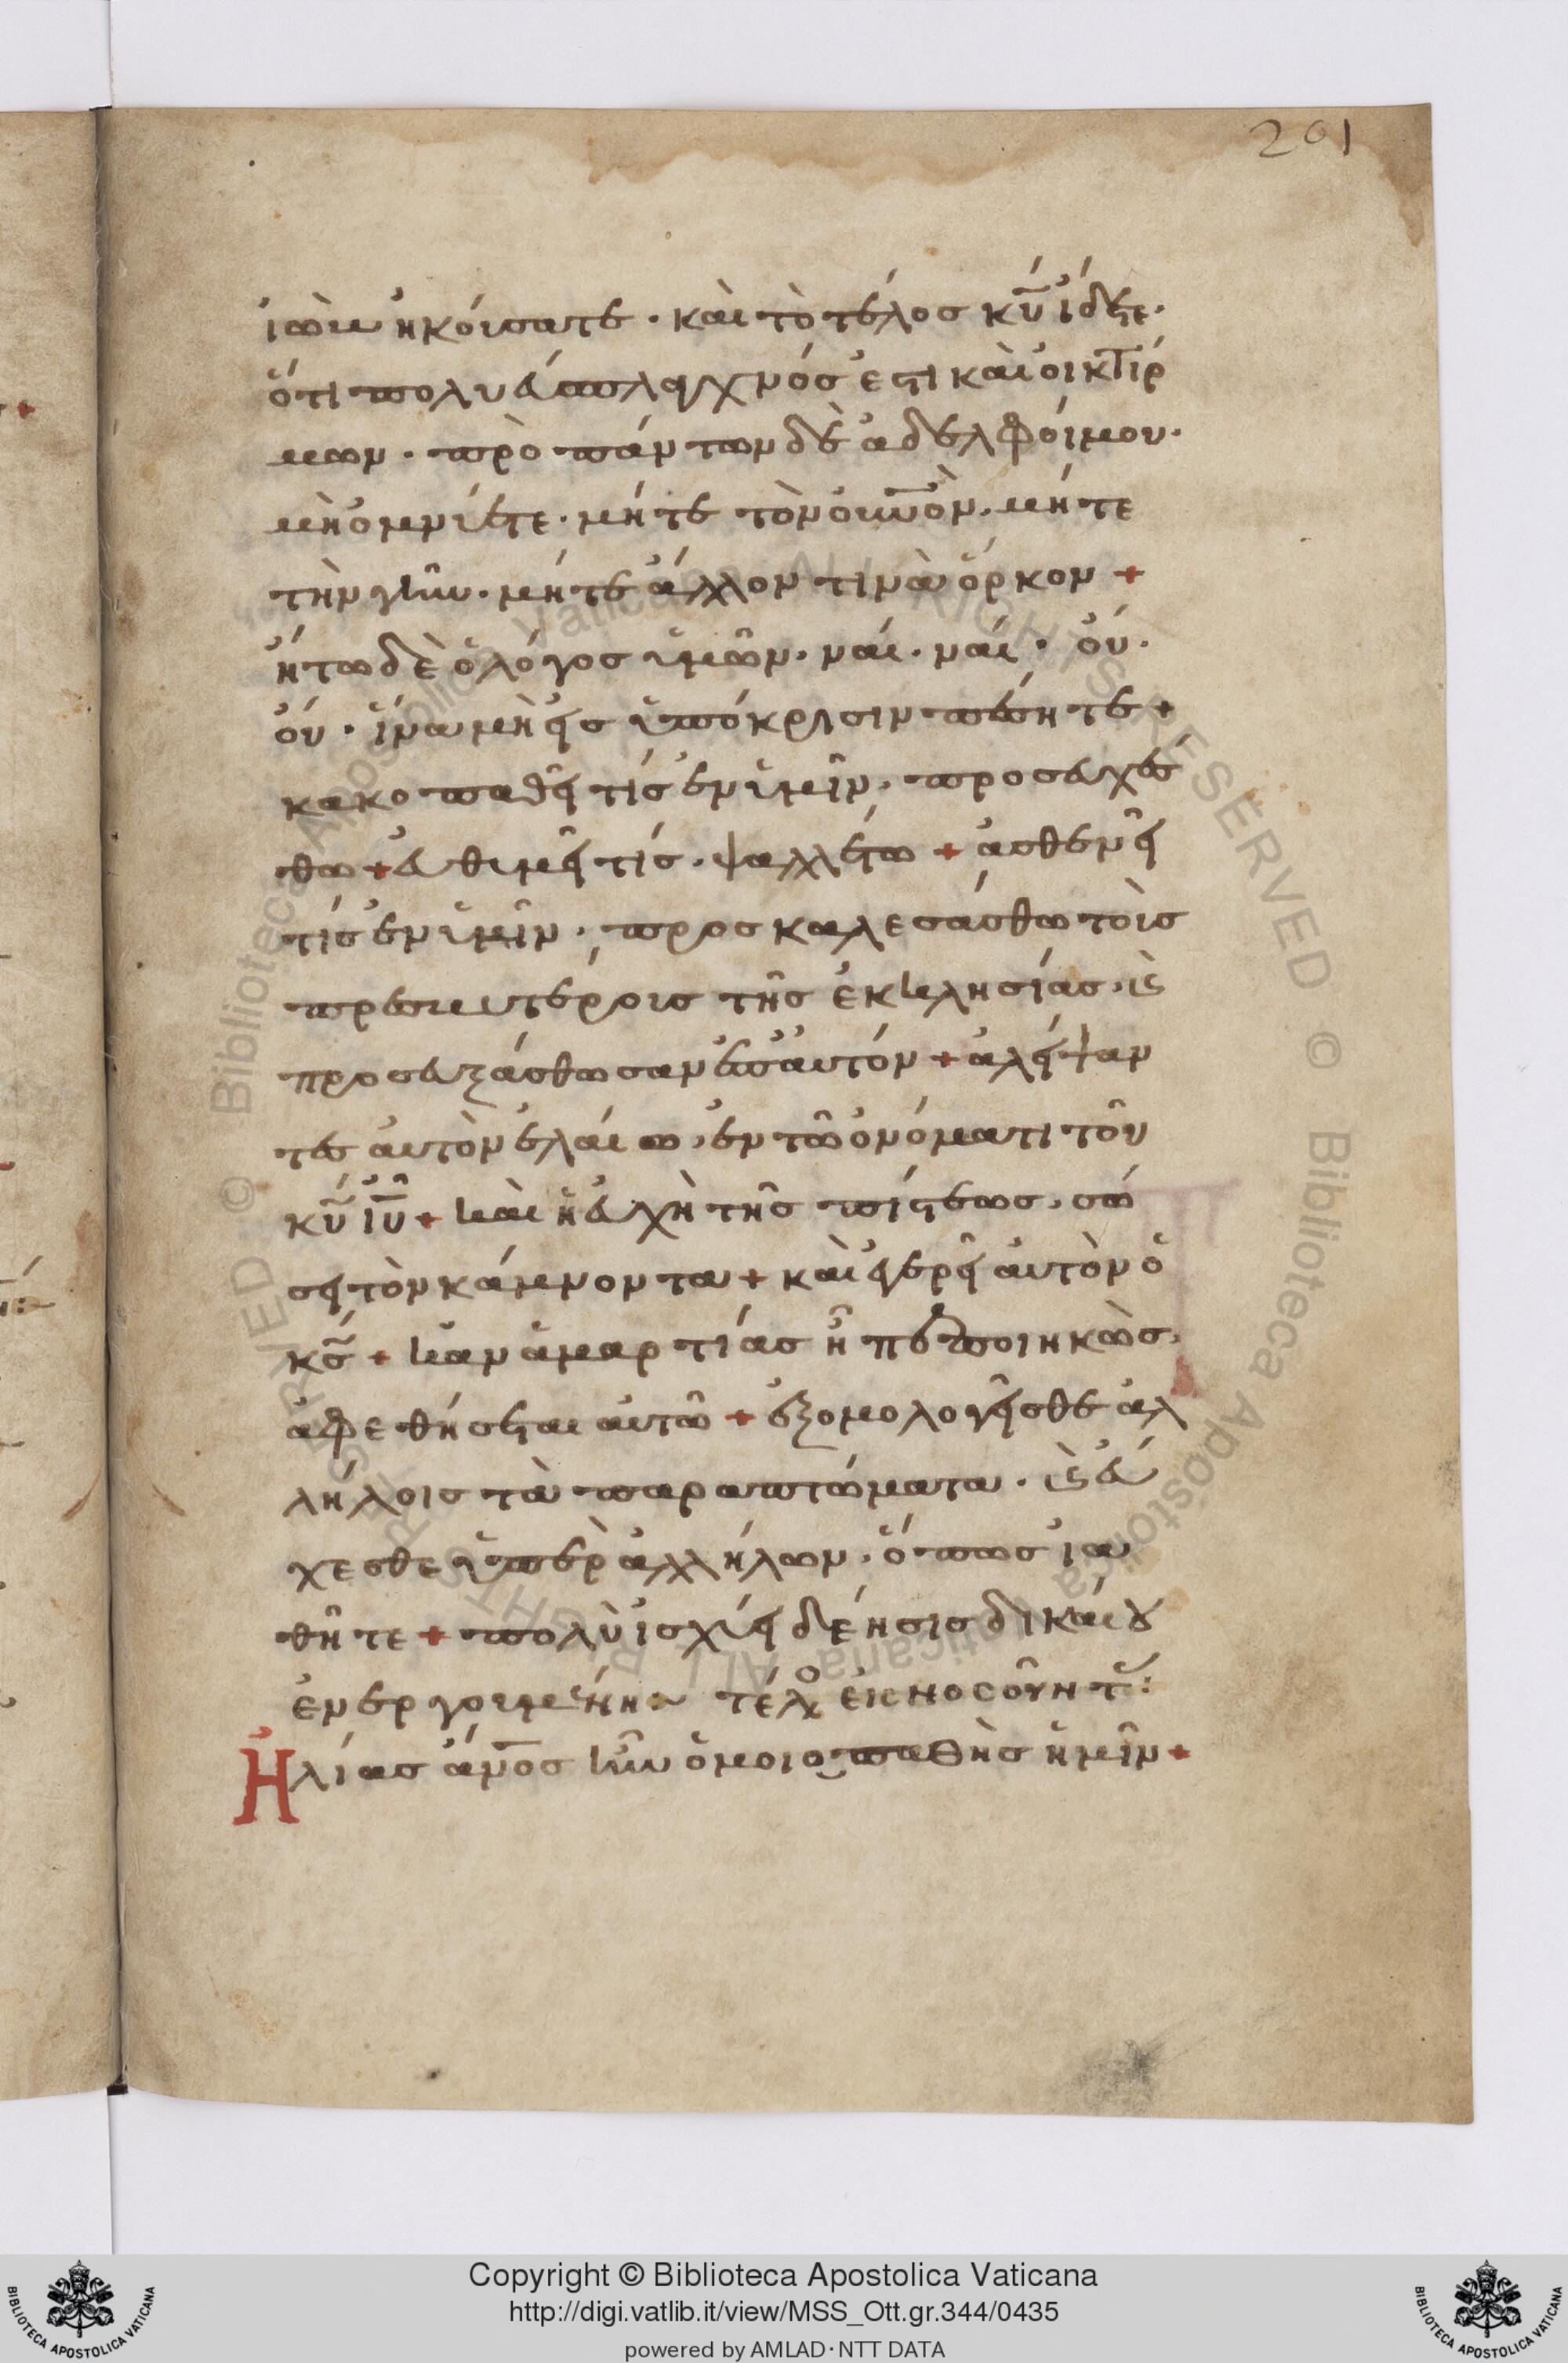 201
ἰὼβ ἠκούσατε · καὶ τὸ τέλος κ̅υ̅ ἴδετε ·
ὅτι πολυεύσπλαχνός ἐστι καὶ οἰκτίρ
μων · πρὸ πάντων δὲ ἀδελφοί μου ·
μὴ ὀμνύετε · μήτε τὸν ο̅υ̅ν̅ο̅ν · μήτε
τὴν γῆν · μήτε ἄλλον τινὰ ὅρκον +
ἤτω δὲ ὁ λόγος ὑμῶν · ναί · ναί · οὔ ·
οὔ · ἵνα μὴ εἰς ὑπόκρισιν πέσητε +
κακοπαθεῖ τίς ἐν ὑμῖν · προσευχέσ
θω + εὐθυμεῖ τίς · ψαλλέτω + ἀσθενεῖ
τίς ἐν ὑμῖν · προσκαλεσάσθω τοὺς
πρεσβυτέρους τῆς ἐκκλησίας · κ(αὶ)
προσευξάσθωσαν ἐπ' αὐτόν + ἀλείψαν
τες αὐτὸν ἐλαίω · ἐν τῶ ὀνόματι τοῦ
κ̅υ̅ ι̅υ̅ + καὶ ἡ εὐχὴ τῆς πίστεως · σώ
σει τὸν κάμνοντα + καὶ ἐγερεῖ αὐτὸν ὁ
κ̅ς̅ + κἂν ἁμαρτίας ἦ πεποιηκὼς ·
ἀφεθήσεται αὐτῶ + ἐξομολογεῖσθε ἀλ
λήλοις τὰ παραπτώματα · κ(αὶ) εὔ
χεσθε ὑπὲρ ἀλλήλων · ὅπως ἰα
θῆτε + πολὺ ἰσχύει δέησις δικαίου
ἐνεργουμένη
Ἠλίας ἄν̅ο̅ς ἦν ὁμοιοπαθὴς ἡμῖν +
Copyright © Biblioteca Apostolica Vaticana
http://digi.vatlib.it/view/MSS_Ott.gr.344/0435
powered by AMLAD·NTT DATA